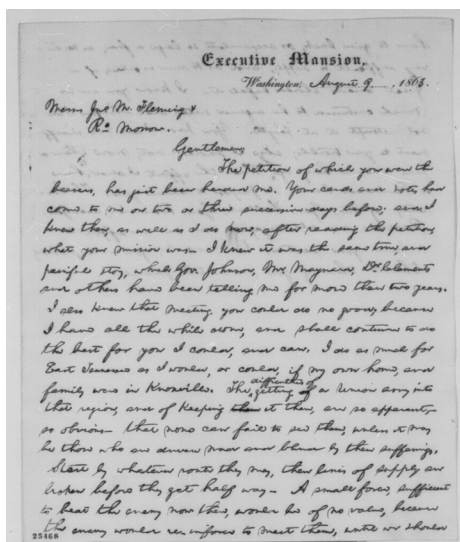 Executive Mansion,
Washington, August 9, 1863.
Messrs Jno. M. Fleming &
R. Morrow.
Gentlemen
The petition of which you were the
bearers, has just been handed me. Your cards and notes had
come to me on two or three successive days before; and I
knew then, as well as I do now, after reading the petition,
what your mission was. I knew it was the same true, and
painful story, which Gov. Johnson, Mr. Maynard, Dr. Clements
and others have been telling me for more than two years.
I also knew that meeting you could do no good; because
I have all the while done, and shall continue to do
the best for you I could, and can. I do as much for
East Tennessee as I would, or could, if my own home, and
family were in Knoxville. The difficulties of getting a Union army into
that region, and of keeping it there, are so apparent,
so obvious - that none can fail to see them, unless it may
be those who are driven mad and blind by their sufferings.
Start by whatever route they may, their lines of supply are
broken before they get half way. A small force, sufficient
to beat the enemy now there, would be of no value, because
the enemy would re-inforce to meet them, until we should
25468